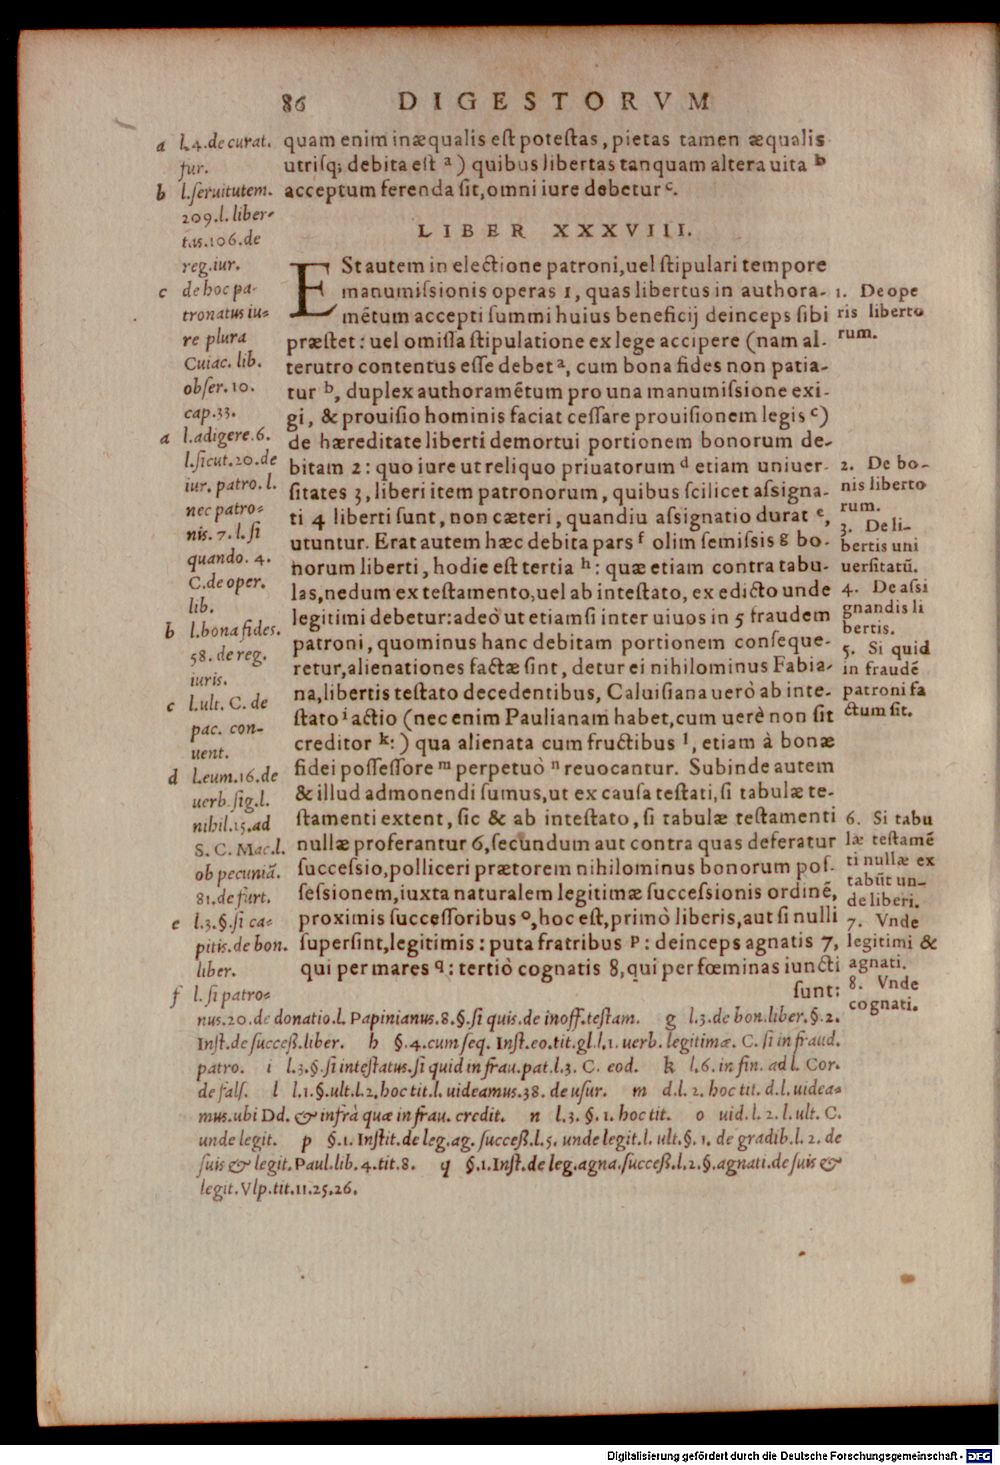 86 DIGESTORVM
quam enim inæqualis est potestas, pietas tamen æqualis
utrisq; debita est a) quibus libertas tanquam altera uita b
acceptum ferenda sit, omni iure debetur c.
LIBER XXXVIII.
ESt autem in electione patroni, uel stipulari tempore
manumissionis operas 1, quas libertus in authora-
mētum accepti summi huius beneficij deinceps sibi
præstet: uel omissa stipulatione ex lege accipere (nam al-
terutro contentus esse debet a, cum bona fides non patia-
tur b, duplex authoramētum pro una manumissione exi-
gi, & prouisio hominis faciat cessare prouisionem legis c)
de hæreditate liberti demortui portionem bonorum de-
bitam 2: quo iure ut reliquo priuatorum d etiam uniuer-
sitates 3, liberi item patronorum, quibus scilicet assigna-
ti 4 liberti sunt, non cæteri, quandiu assignatio durat e,
utuntur. Erat autem hæc debita pars f olim semissis g bo-
norum liberti, hodie est tertia h: quæ etiam contra tabu-
las, nedum ex testamento, uel ab intestato, ex edicto unde
legitimi debetur: adeò ut etiamsi inter uiuos in 5 fraudem
patroni, quominus hanc debitam portionem conseque-
retur, alienationes factæ sint, detur ei nihilominus Fabia-
na, libertis testato decedentibus, Caluisiana uerò ab inte-
stato i actio (nec enim Paulianam habet, cum uerè non sit
creditor k:) qua alienata cum fructibus l, etiam à bonæ
fidei possessore m perpetuò n reuocantur. Subinde autem
& illud admonendi sumus, ut ex causa testati, si tabulæ te-
stamenti extent, sic & ab intestato, si tabulæ testamenti
nullæ proferantur 6, secundum aut contra quas deferatur
successio, polliceri prætorem nihilominus bonorum pos-
sessionem, iuxta naturalem legitimæ successionis ordinē,
proximis successoribus o, hoc est, primò liberis, aut si nulli
supersint, legitimis: puta fratribus p: deinceps agnatis 7,
qui per mares q: tertiò cognatis 8, qui per fœminas iuncti
sunt:
a l.4. de curat.
fur.
b l.seruitutem.
209.l. liber-
tas.106.de
reg.iur.
c de hoc pa-
tronatus iu-
re plura
Cuiac. lib.
obser. 10.
cap.33.
a l.adigere.6.
l.sicut.20.de
iur. patro. l.
nec patro-
nis. 7. l. si
quando. 4.
C.de oper.
lib.
b l.bona fides.
58. de reg.
iuris.
c l.ult. C. de
pac. con-
uent.
d l.eum.16.de
uerb sig.l.
nihil.15.ad
S. C. Mac.l.
ob pecuniā.
81.de furt.
e l.3.§.si ca-
pitis.de bon.
liber.
f l. si patro-
nus.20.de donatio.l. Papinianus.8.§.si quis.de inoff.testam. g l.3.de bon.liber.§.2.
Inst.de success.liber. h §.4.cum seq. Inst.eo.tit.gl.l.1. uerb. legitimæ. C. si in fraud.
patro. i l.3.§.si intestatus.si quid in frau.pat.l.3. C. eod. k l.6.in fin. ad l. Cor.
de fals. l l.1.§.ult.l.2.hoc tit.l. uideamus.38. de usur. m d.l. 2. hoc tit. d.l. uidea-
mus.ubi Dd. & infrà quæ in frau. credit. n l.3. §.1. hoc tit. o uid. l. 2. l. ult. C.
unde legit. p §.1. Instit.de leg.ag. success.l.5. unde legit.l. ult.§.1. de gradib.l. 2. de
suis & legit. Paul.lib. 4.tit.8. q §.1.Inst.de leg.agna.success.l.2.§.agnati.de suis &
legit.Vlp.tit.11.25.26.
1. De ope
ris liberto
rum.
2. De bo-
nis liberto
rum.
3. De li-
bertis uni
uersitatū.
4. De assi
gnandis li
bertis.
5. Si quid
in fraudē
patroni fa
ctum sit.
6. Si tabu
læ testamē
ti nullæ ex
tabūt un-
de liberi.
7. Vnde
legitimi &
agnati.
8. Vnde
cognati.
Digitalisierung gefördert durch die Deutsche Forschungsgemeinschaft - DFG